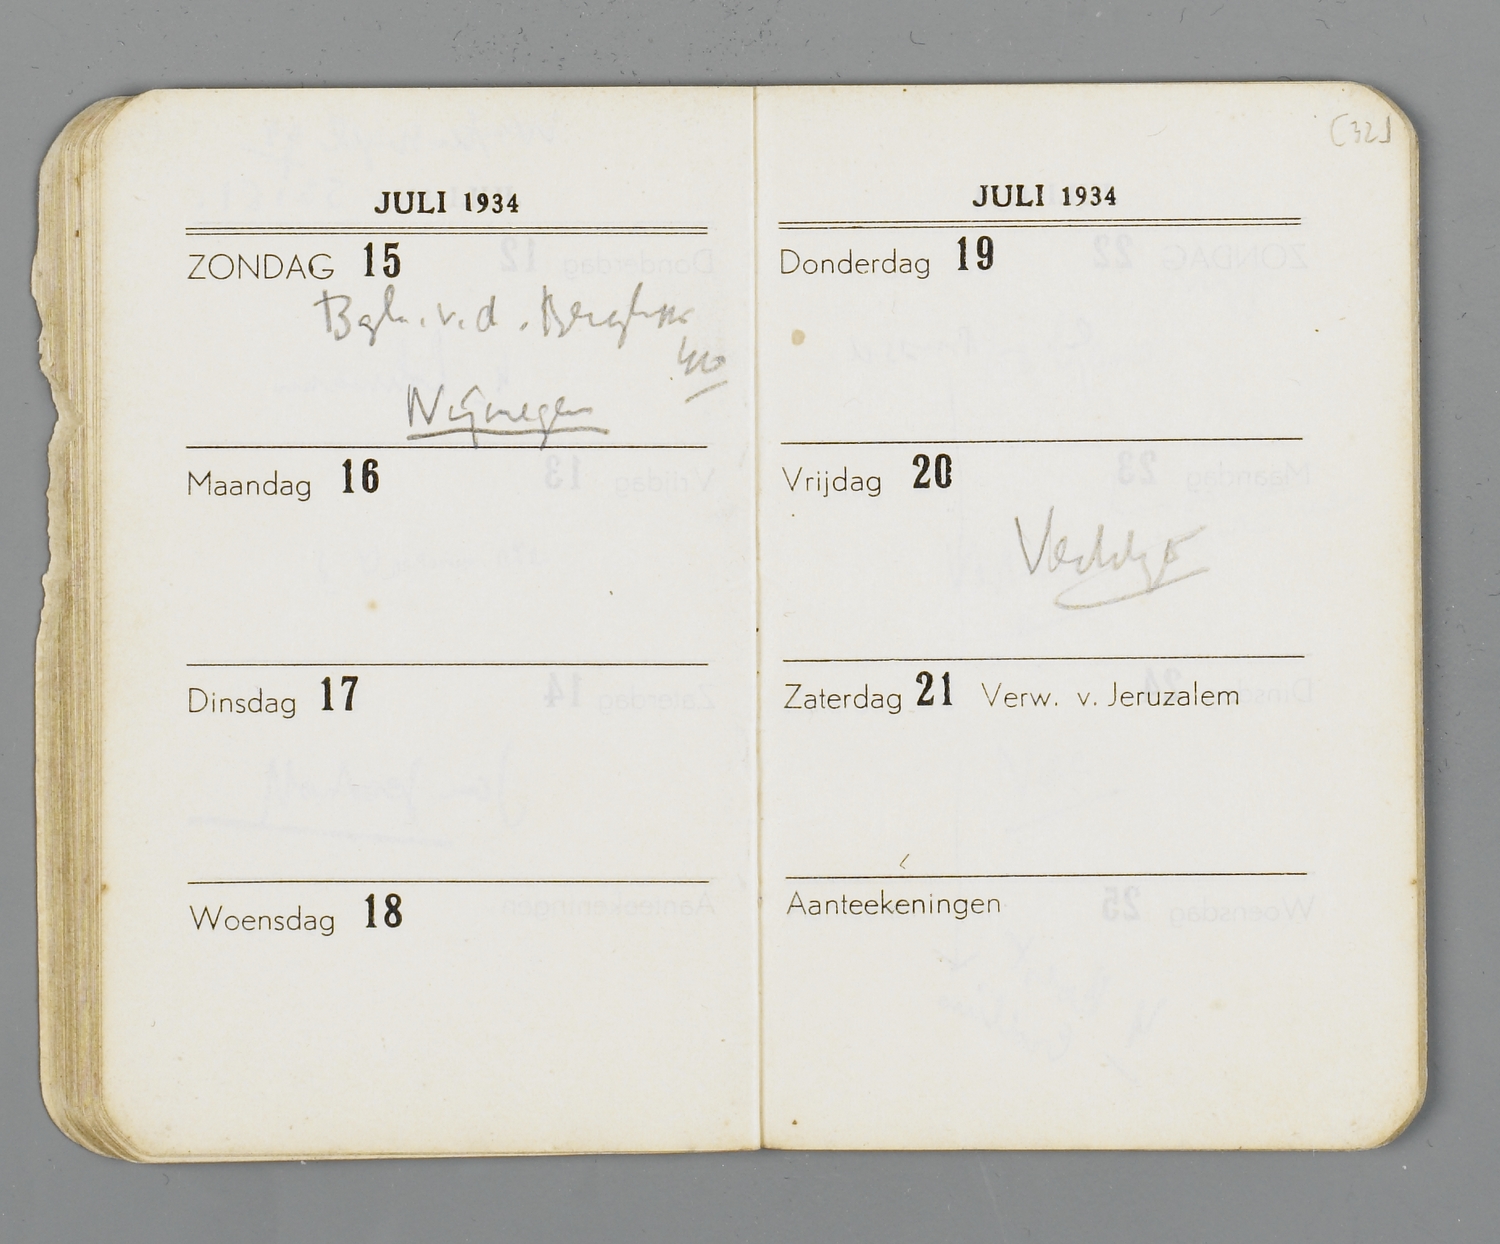 JULI 1934
ZONDAG 15
v.d.
Nijmegen
Maandag 16
Dinsdag 17
Woensdag 18
[32]
JULI 1934
Donderdag 19
Vrijdag 20
Zaterdag 21 Verw. v. Jeruzalem
Aanteekeningen